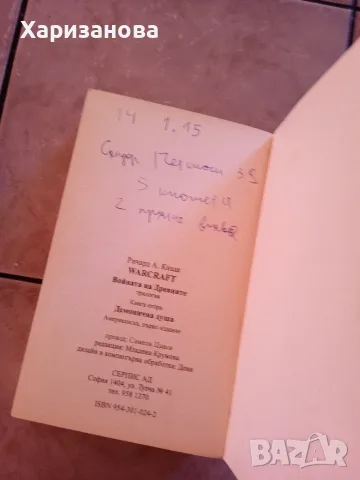 Харизанова
14 1.15
5
2 пряко
Ричард А. Кнаак
WARCRAFT
Войната на Древните
трилогия
Книга втора
Демонична душа
Американска, първо издание
превод: Симеон Цанев
редакция: Младена Крумова
дизайн и компютърна обработка: Деви
СЕРПИС АД
София 1404, ул. Луна № 41
тел. 958 1270
ISBN 954-301-024-2
bazar